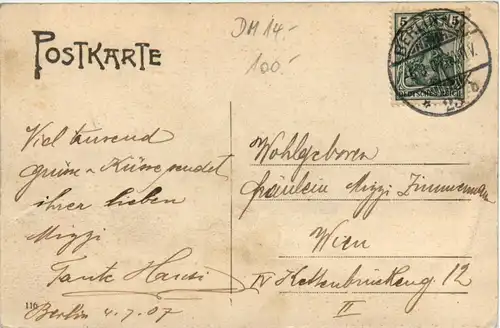 POSTKARTE
DM 14.-
100.-
5
BERLIN
DEUTSCHES REICH
Viel tausend
grüsse u Küsse sendet
ihrer lieben
Mizzi
Tante Hansi
116
Berlin 4.7.07
Wohlgeboren
Fräulein Mizzi Zimmermann
Wien
IV Kettenbrückeng 12
II